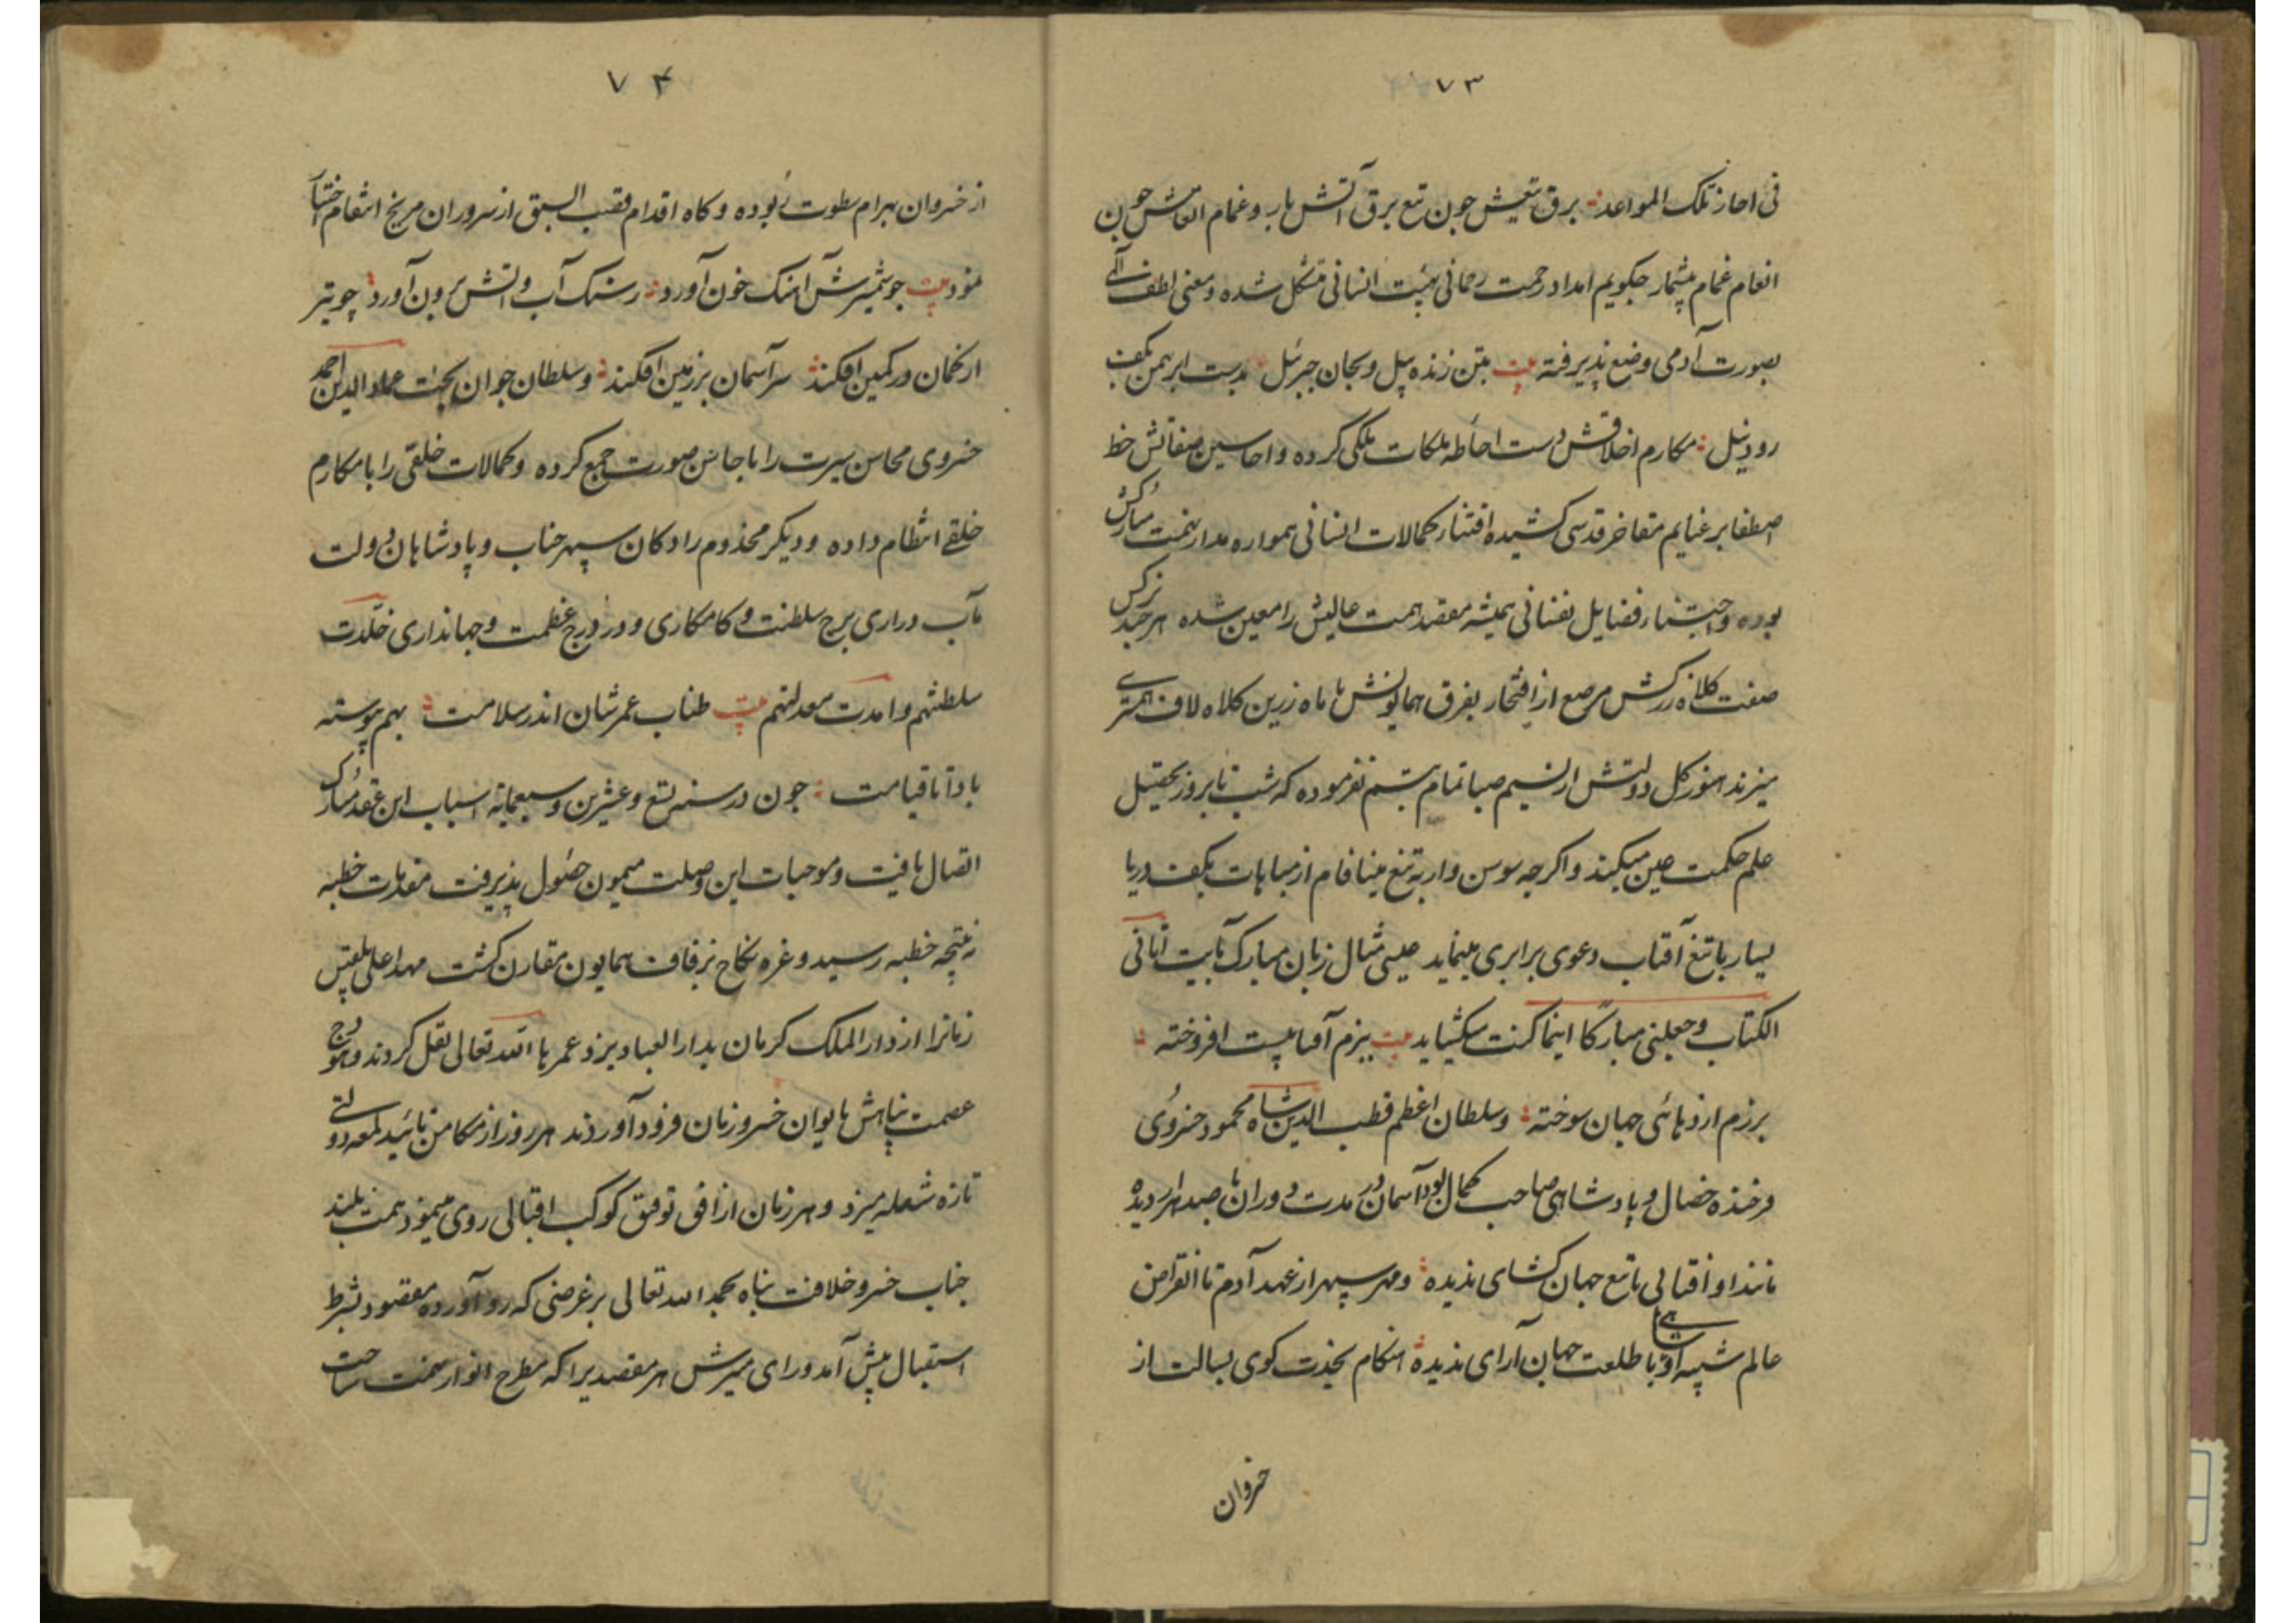 ۷۳
فی انجاز تلک المواعد برق تیغش چون تیغ برق آتش بار و غمام انعامش چون
انعام غمام بیشمار چگویم امداد رحمت رحمانی بهیئت انسانی متشکل شده و معنی لطف الهی
بصورت آدمی وضع پذیرفته بیت بتن زنده پیل و بجان جبرئیل بدست ابر بهمن بکف
رود نیل مکارم اخلاقش دست احاطه ملکات ملکی کرده و احاسین صفاتش خط
اصطفا بر غنایم مفاخر قدسی کشیده اقتنار کمالات انسانی همواره مدار نهمت مبارکش
بوده و اجتنار فضایل نفسانی همیشه مقصد همت عالیش را معین شده هر چند نرکس
صفت کلاه زرکش مرصع از افتخار بفرق همایونش با ماه زرین کلاه لاف همسری
میزند هنوز کل دولتش از نسیم صبا تمام تبسم نفرموده که شب تا بروز بتحصیل
علم حکمت عین میکند و اکرچه سوسن وار به تیغ مینا فام از مباهات بکف دریا
یسار با تیغ آفتاب دعوی برابری مینماید عیسی مثال زبان مبارک بآیت آتانی
الکتاب و جعلنی مبارکًا اینما کنت میکشاید بیت ببزم آفتابیست افروخته
برزم اژدهائی جهان سوخته و سلطان اعظم قطب الدین شاه محمود خسروی
فرخنده خصال و پادشاهی صاحب کمال بود آسمان در مدت دوران با صد هزار دیده
مانند او اقبالی با تیغ جهان کشای ندیده و مهر سپهر از عهد آدم تا انقراض
عالم شبیه او شاهی با طلعت جهان آرای ندیده هنکام نجدت کوی بسالت از
خسروان
۷۴
از خسروان بهرام سطوت ربوده و کاه اقدام قصب السبق از سروران مریخ انتقام اختیار
نمود بیت چو شمشیرش آهنک خون آورد ز سنک آب و آتش برون آورد چو تیر
از کمان در کمین افکند سر آسمان بر زمین افکند و سلطان جوان بخت عماد الدین احمد
خسروی محاسن سیرت را با حاسن صورت جمع کرده و کمالات خلقی را با مکارم
خلقی انتظام داده و دیکر مخدوم زادکان سپهر جناب و پادشاهان دولت
مآب دراری برج سلطنت و کامکاری و درر درج عظمت و جهانداری خلدت
سلطنتهم و امدت معدلتهم بیت طناب عمرشان اندر سلامت بهم پیوسته
باد تا قیامت چون در سنه تسع و عشرین و سبعمایه اسباب این عقد مبارک
اتصال یافت و موجبات این وصلت میمون حصول پذیرفت مقدمات خطبه
بنتیجه خطبه رسید و غره نکاح بزفاف همایون مقارن کشت مهد اعلی بلقیس
زمانرا از دار الملک کرمان بدار العباد یزد عمرها الله تعالی نقل کردند و هودج
عصمت پناهش بایوان خسرو زمان فرود آوردند هر روز از مکامن تائید لمعه دولتی
تازه شعله میزد و هر زمان از افق توفیق کوکب اقبالی روی مینمود همت بلند
جناب خسرو خلافت پناه بحمد الله تعالی بر غرضی که رو آورده مقصود بشرط
استقبال پیش آمد و رای منیرش هر مقصدیرا که مطرح انوار نهمت ساخت